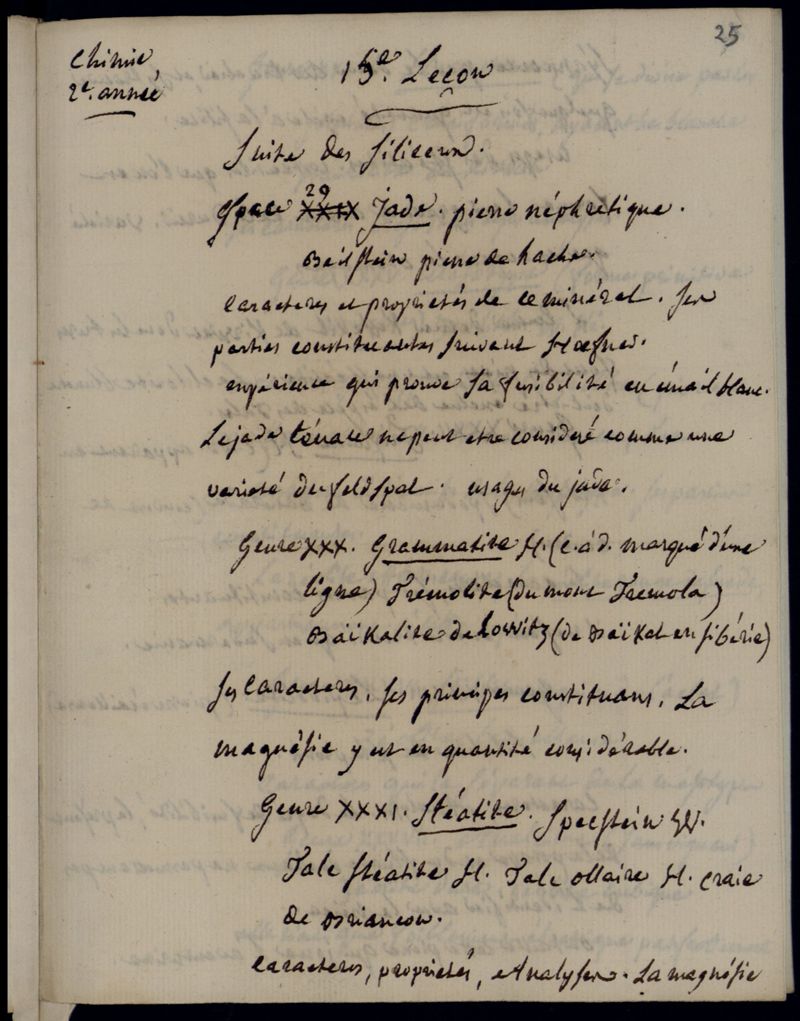 25
Chimie
2e. année
15e. Leçon
Suite des siliceux.
29
Espece XXIX Jade. pierre néphretique.
Beilstein pierre de hache.
caracteres et proprietés de ce minéral. ses
parties constituantes suivant Hœpfner.
expérience qui prouve sa fusibilité en émail blanc.
Le jade tenace ne peut etre consideré comme une
varieté du feldspat. usages du jade.
Genre XXX. Grammatite H. (c. à d. marqué d'une
ligne) Trémolite (du mont Tremola)
Baïkalite de Lowitz (de Baïkal en sibérie)
ses caracteres, ses principes constituans. La
magnésie y est en quantité considérable.
Genre XXXI. Stéatite. Specstein W.
Talc stéatite H. Talc ollaire H. craie
de Briancon.
caracteres, proprietés, Analyses. La magnésie